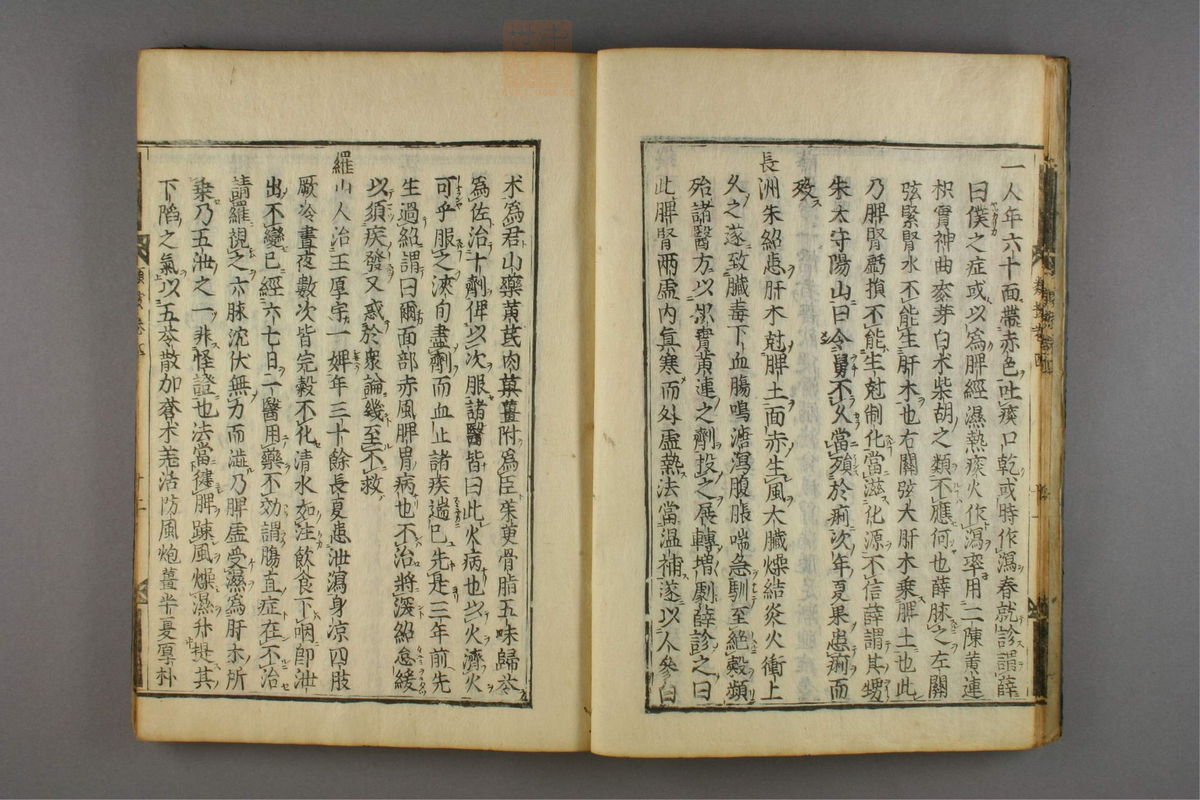 一人年六十面帶赤色吐痰口乾或時作瀉春就診謂薛
曰僕之症或以為脾經濕熱痰火作瀉率用二陳黃連
枳實神曲麥芽白朮柴胡之類不應何也薛脉之左關
弦緊腎水不能生肝木也右關弦大肝木乘脾土也此
乃脾腎虧損不能生尅制化當滋化源不信薛謂其甥
朱太守陽山曰令舅不久當殞於痢次年夏果患痢而
歿
長洲朱紹患肝木尅脾土面赤生風大臟燥結炎火衝上
久之遂致臟毒下血腸鳴溏瀉腹脹喘急馴至絕穀頻
殆諸醫方以枳實黃連之劑投之展轉增劇薛診之曰
此脾腎兩虛內真寒而外虛熱法當溫補遂以人參白
朮為君山藥黃芪肉菓薑附為臣茱萸骨脂五味歸苓
為佐治十劑俾以次服諸醫皆曰此火病也以火濟火
可乎服之浹旬盡劑而血止諸疾遄已先是三年前先
生過紹謂曰爾面部赤風脾胃病也不治將深紹怠緩
以須疾發又惑於衆論幾至不救
羅山人治王厚宇一婢年三十餘長夏患泄瀉身涼四肢
厥冷晝夜數次皆完穀不化清水如注飲食下咽即泄
出不變已經六七日一醫用藥不効謂腸直症在不治
請羅視之六脉沈伏無力而澁乃脾虛受濕為肝木所
乘乃五泄之一非怪證也法當健脾踈風燥濕升提其
下陷之氣以五苓散加蒼朮羌活防風炮薑半夏厚朴